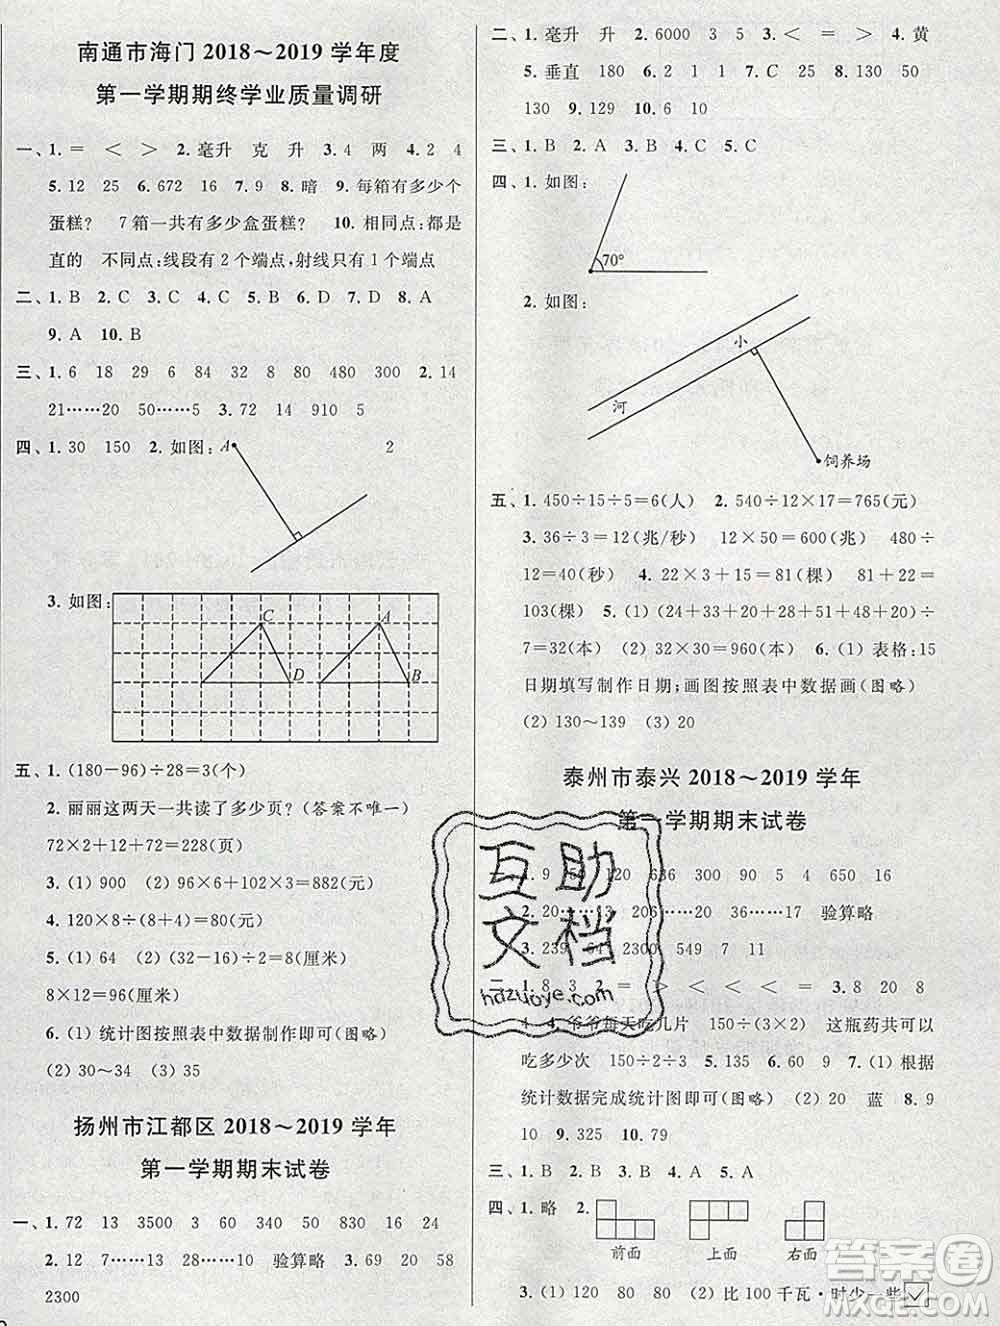 南通市海门 2018～2019 学年度
第一学期期终学业质量调研
一、1. ＝ ＜ ＞ 2. 毫升 克 升 3. 4 两 4. 2 4
5. 12 25 6. 672 16 7. 9 8. 暗 9. 每箱有多少个
蛋糕？ 7 箱一共有多少盒蛋糕？ 10. 相同点:都是
直的 不同点:线段有 2 个端点,射线只有 1 个端点
二、1. B 2. C 3. C 4. C 5. B 6. D 7. D 8. A
9. A 10. B
三、1. 6 18 29 6 84 32 8 80 480 300 2. 14
21……20 50……5 3. 72 14 910 5
四、1. 30 150 2. 如图: A 2
3. 如图:
C A
D B
五、1. (180－96)÷28＝3(个)
2. 丽丽这两天一共读了多少页？(答案不唯一)
72×2＋12＋72＝228(页)
3. (1) 900 (2) 96×6＋102×3＝882(元)
4. 120×8÷(8＋4)＝80(元)
5. (1) 64 (2) (20－4)÷2＝8(厘米)
8×12＝96(厘米)
6. (1) 统计图按照表中数据制作即可(图略)
(2) 30～34 (3) 35
扬州市江都区 2018～2019 学年
第一学期期末试卷
一、1. 72 13 3500 3 60 340 50 830 16 24
2. 12 7……13 28……10 验算略 3. 69 20 58
2300
二、1. 毫升 升 2. 6000 3 5 3. ＜ ＞ ＞ 4. 黄
5. 垂直 180 6. 19 7. C 25 8. 130 50
130 9. 129 10. 6
三、1. B 2. A 3. B 4. C 5. C
四、1. 如图:
70°
2. 如图:
小
路
河
饲养场
五、1. 450÷15÷5＝6(人) 2. 540÷12×17＝765(元)
3. 36÷3＝12(兆/秒) 12×50＝600(兆) 480÷
12＝40(秒) 4. 22×3＋15＝81(棵) 81＋22＝
103(棵) 5. (1) (24＋33＋20＋28＋51＋48＋20)÷
7＝32(本) (2) 32×30＝960(本) 6. (1) 表格:15
日期填写制作日期;画图按照表中数据画(图略)
(2) 130～139 (3) 20
泰州市泰兴 2018～2019 学年
第一学期期末试卷
1. 9 50 120 636 300 900 650 16
2. 20……13 206……20 36……17 验算略
3. 239 64 2300 549 7 11
二、1. 8 3 2. ＝ ＞ ＜ ＜ ＜ ＝ 3. 8 20 8
4 4. 爷爷每天吃几片 150÷(3×2) 这瓶药共可以
吃多少次 150÷2÷3 5. 135 6. 60 7. (1) 根据
统计数据完成统计图即可(图略) (2) 20 蓝 8. 9
10 9. 325 10. 15
三、1. B 2. A 3. B 4. B 5. B
四、1. 略 2.
前面 上面 右面
3. (1) 120 80 80 (2) 比 100 千瓦·时少一些
互助
文档
hdzuoye.com
答案圈
MXQE.COM